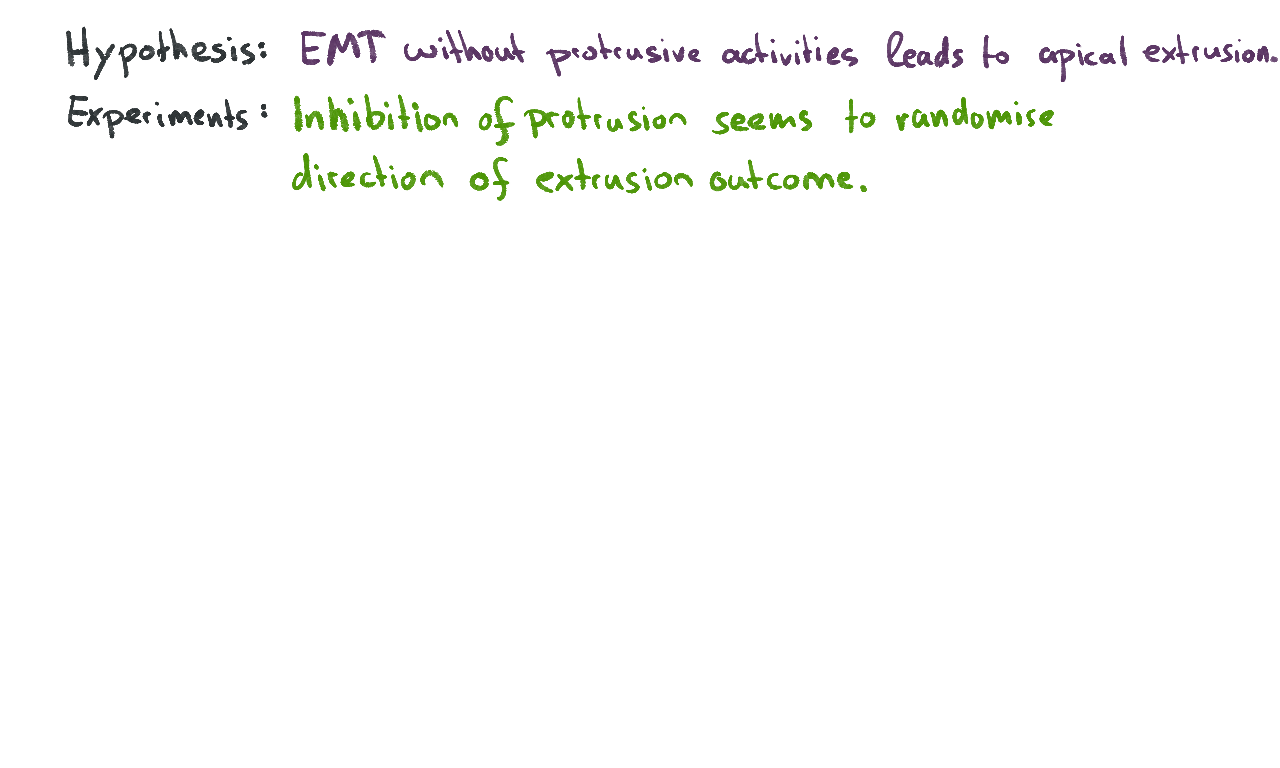 Hypothesis: EMT without protrusive activities leads to apical extrusion.
Experiments: Inhibition of protrusion seems to randomise
direction of extrusion outcome.